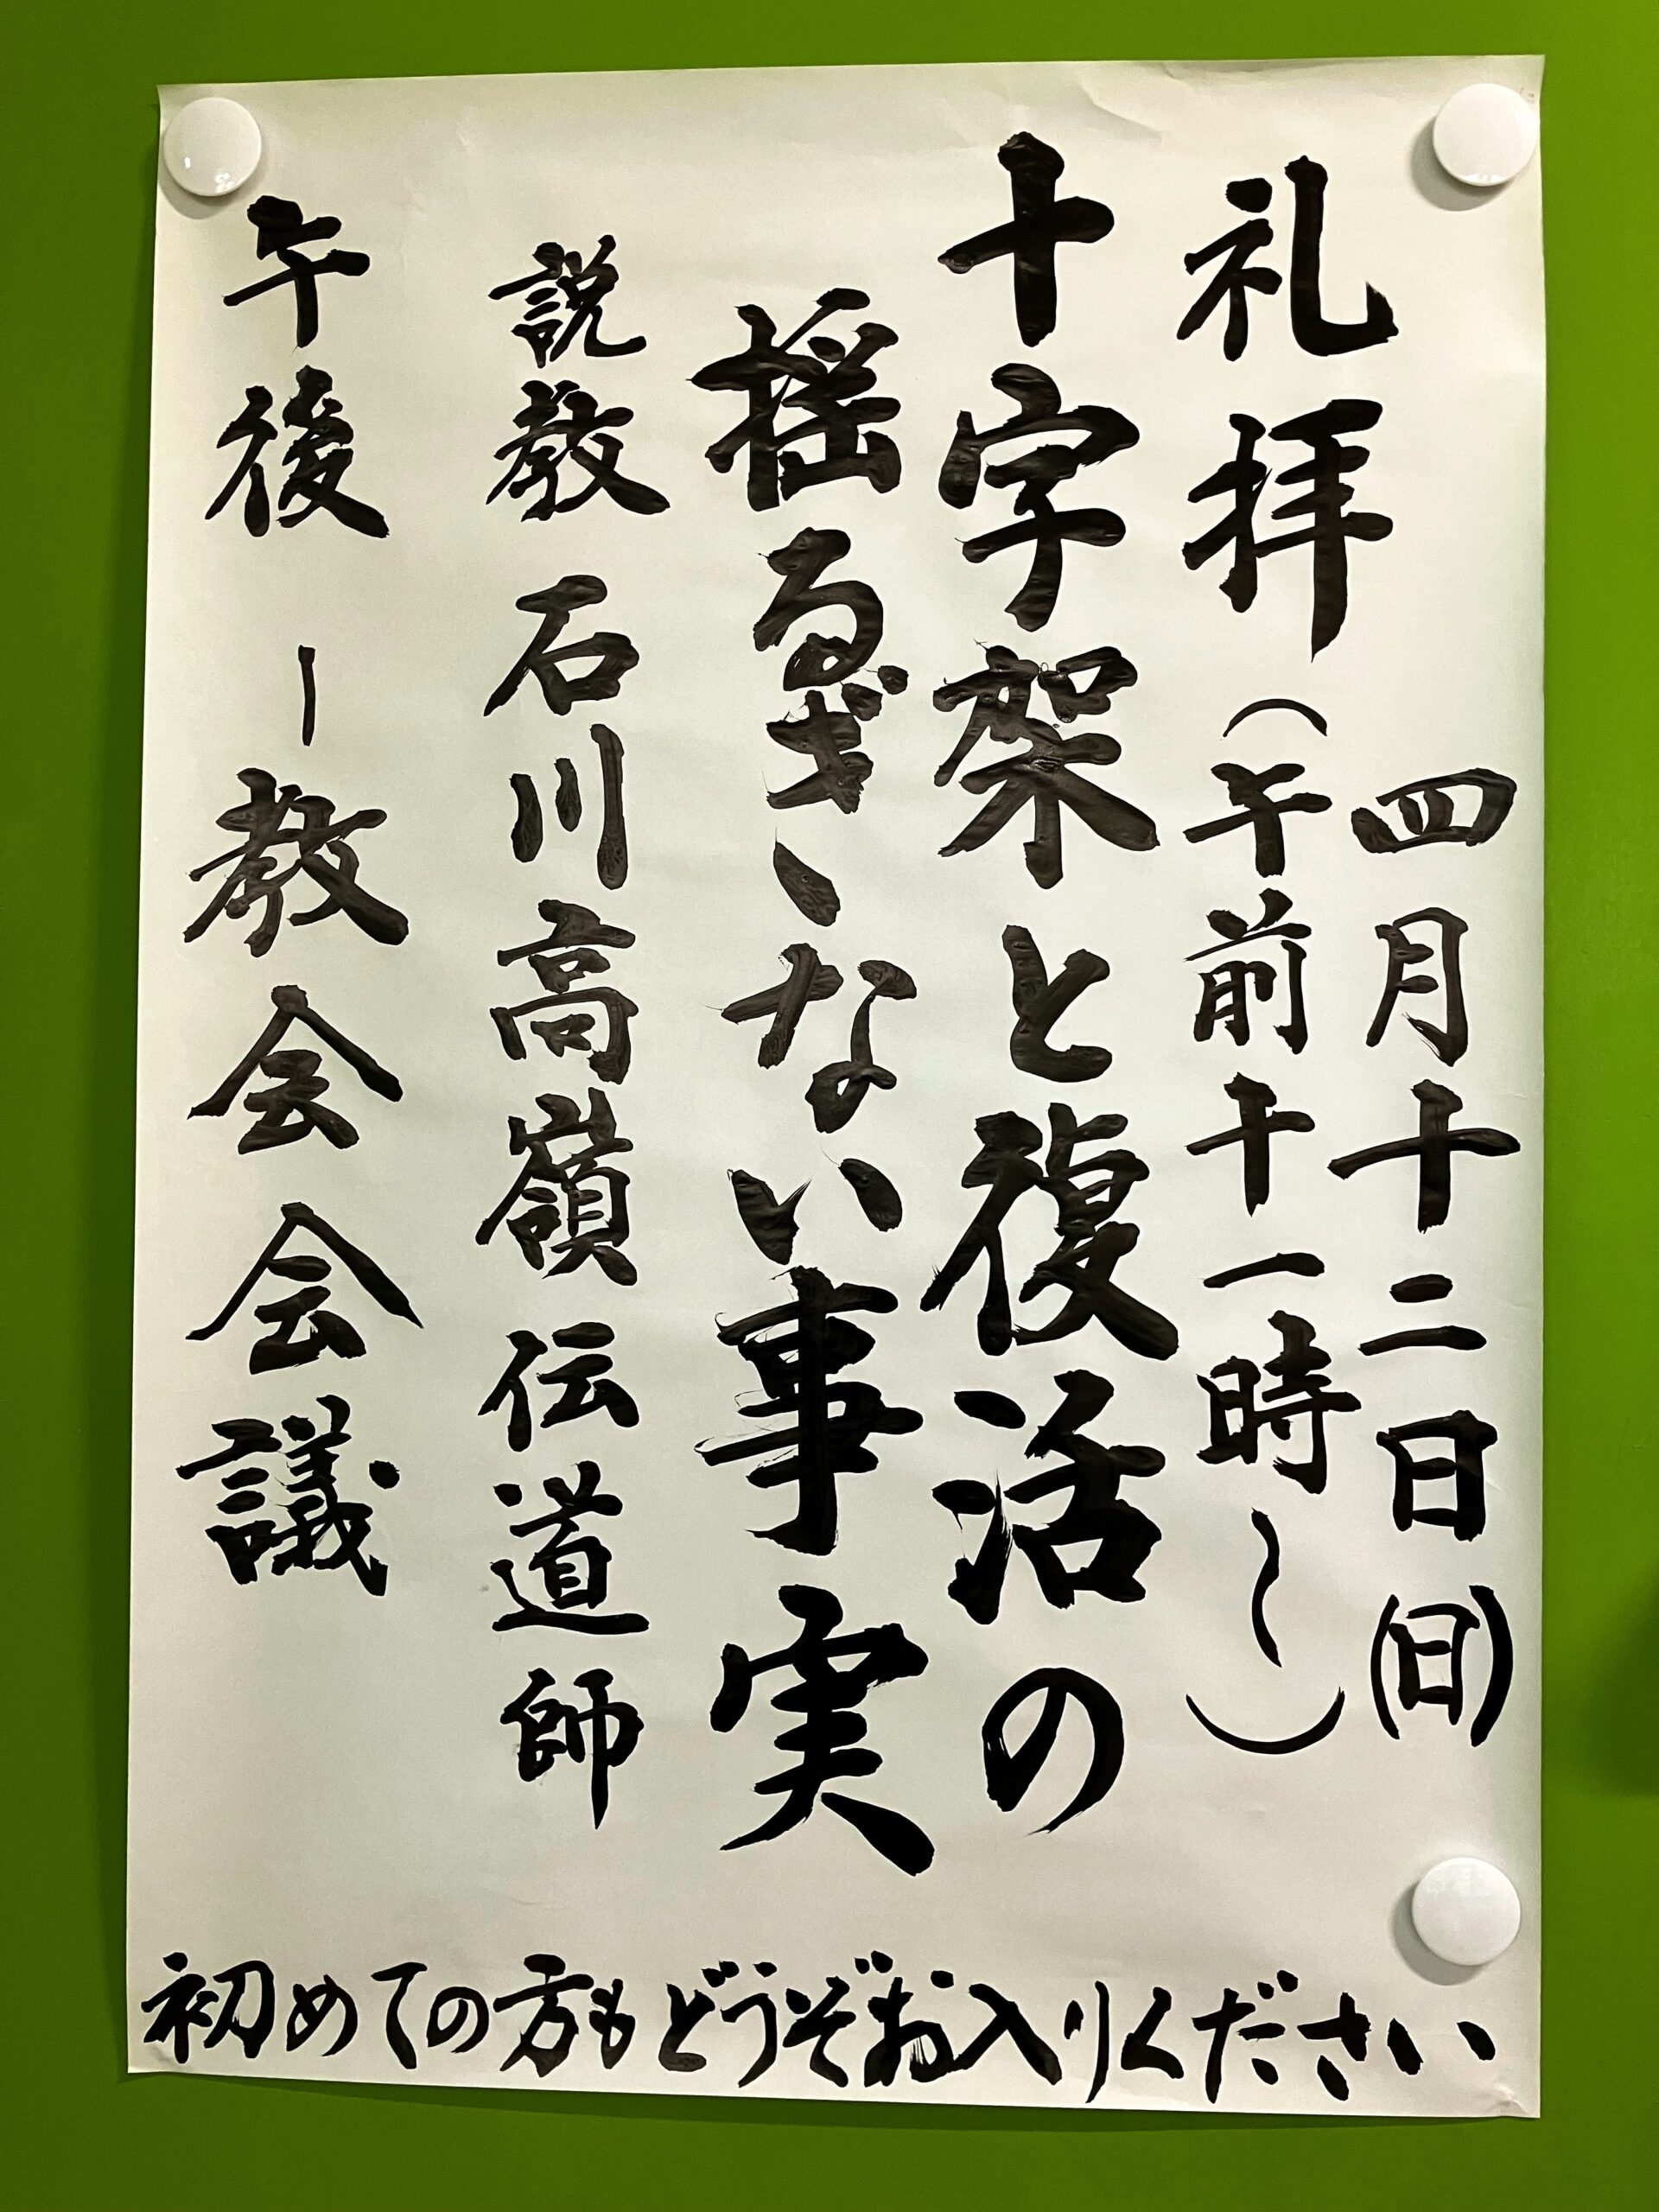 四月十二日(日)
礼拝(午前十一時〜)
十字架と復活の
揺るぎない事実
説教 石川高嶺伝道師
午後 ー教会会議
初めての方もどうぞお入りください